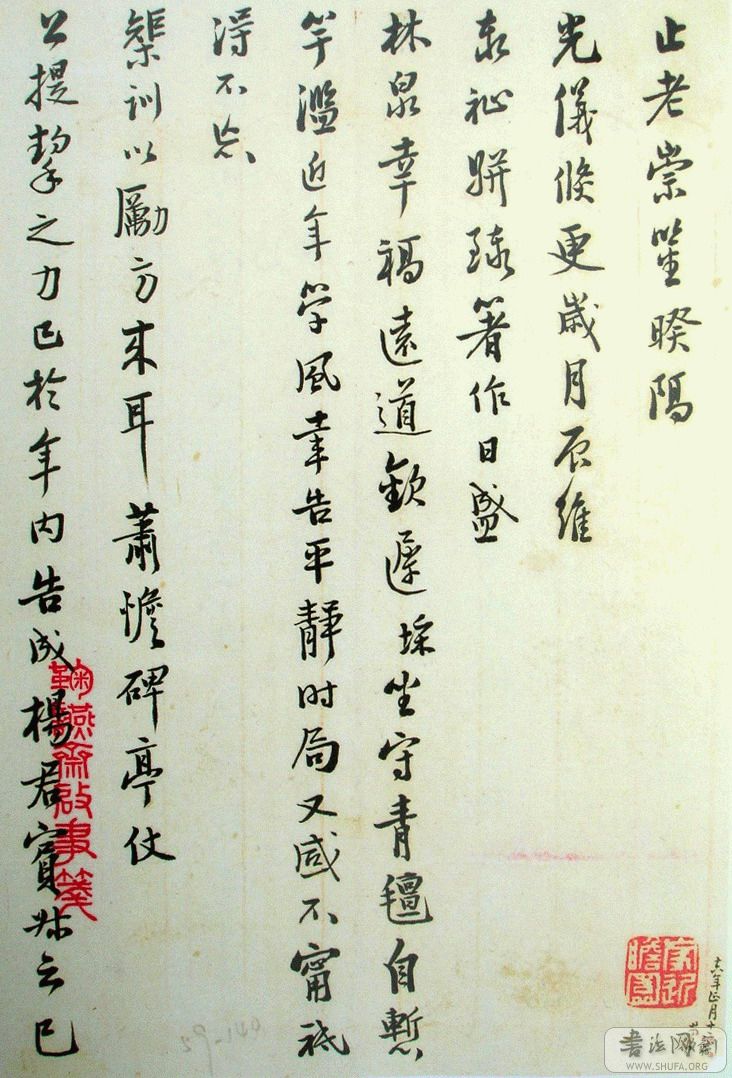 止老崇鉴暌隔
光儀倏更歲月辰維
泰祉駢臻著作日盛
林泉幸福遠道欽遲埰坐守青氈自慙
竽濫近年学風幸告平靜时局又感不甯祗
淂不忘
榘訓以勵方来耳蕭憺碑亭仗
公提挈之力已於年内告成楊君賓叔云已
WWW.SHUFA.ORG